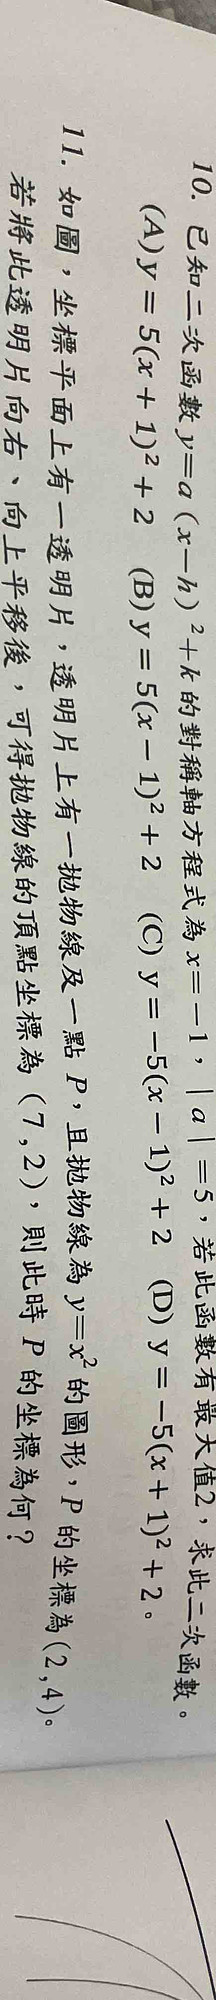 10. 已知二次函數 y=a(x−h)²+k 的對稱軸方程式為 x=−1，|a|=5，若此函數有最大值2，求此二次函數。
(A) y = 5(x + 1)² + 2 (B) y = 5(x − 1)² + 2 (C) y = −5(x − 1)² + 2 (D) y = −5(x + 1)² + 2。
11. 如圖，坐標平面上有一透明片，透明片上有一拋物線及一點 P，且拋物線為 y=x² 的圖形，P 的坐標為(2,4)。
若將此透明片向右、向上平移後，可得拋物線的頂點坐標為 (7,2)，則此時 P 的坐標為何？